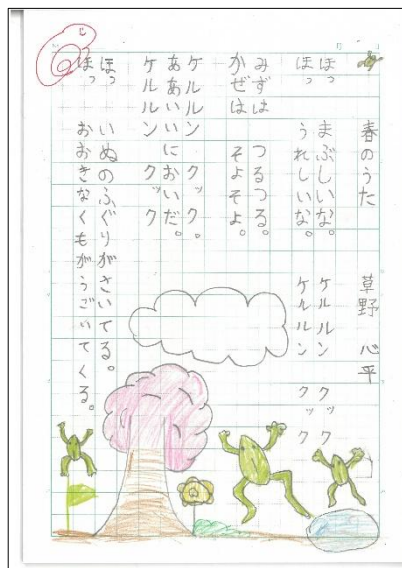 春のうた　草野　心平
ほっ　まぶしいな。　ケルルン　クック
ほっ　うれしいな。　ケルルン　クック
みずは　つるつる。
かぜは　そよそよ。
ケルルン　クック。
ああいいにおいだ。
ケルルン　クック
ほっ　いぬのふぐりがさいてる。
ほっ　おおきなくもがうごいてくる。